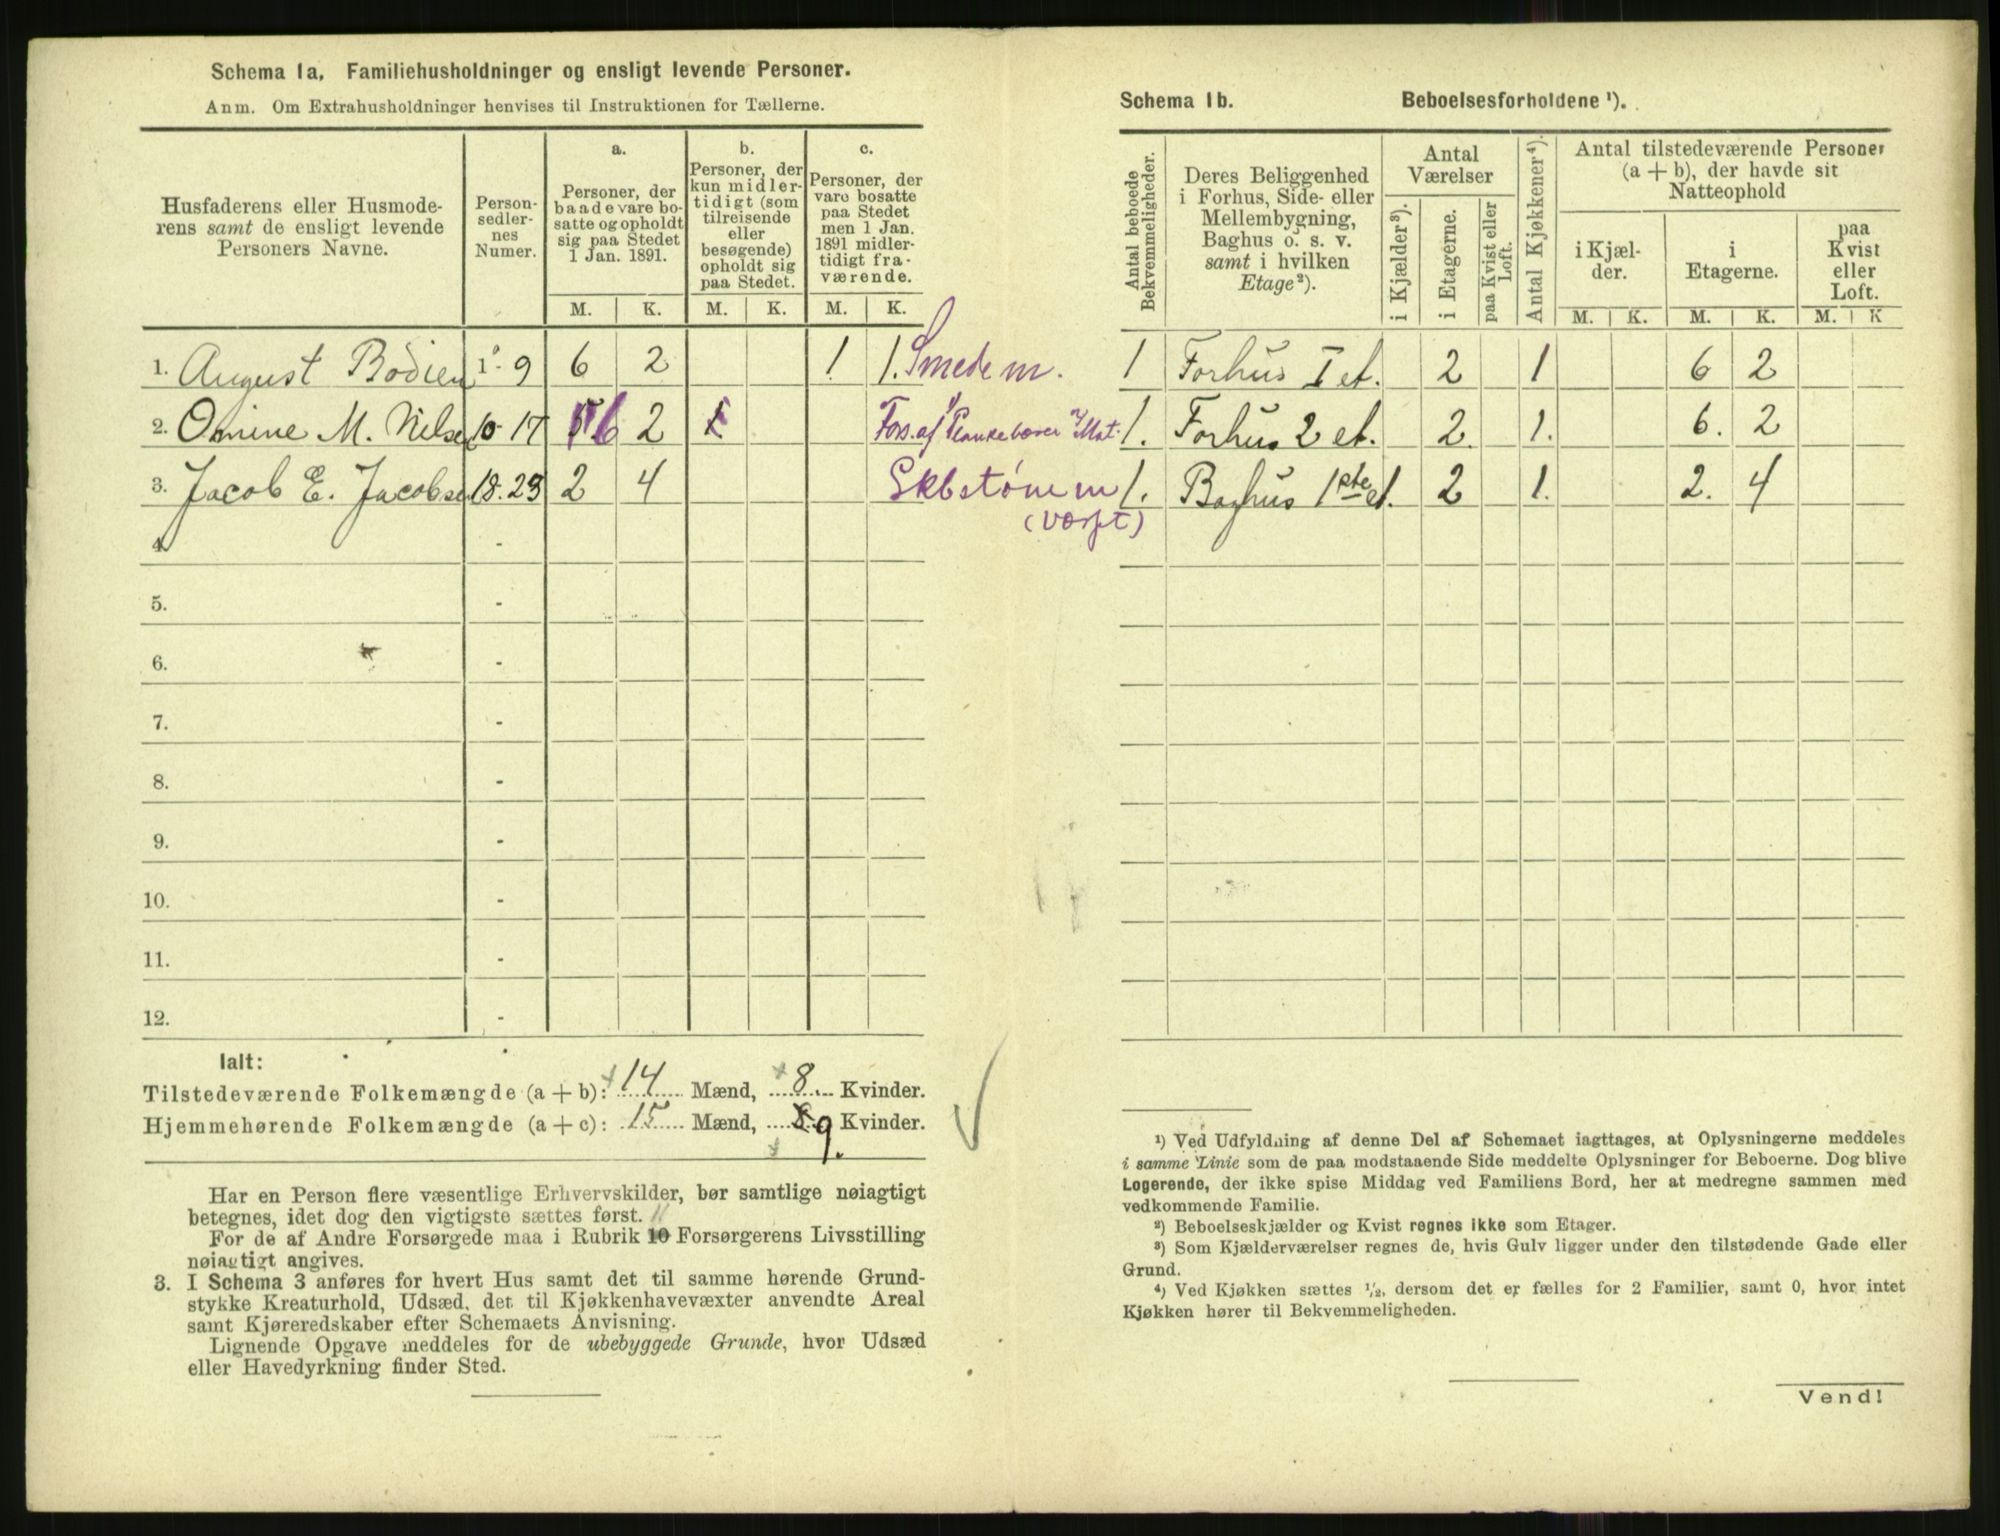 Schema 1a. Familiehusholdninger og ensligt levende Personer.
Anm. Om Extrahusholdninger henvises til Instruktionen for Tællerne.
Husfaderens eller Husmode-
rens samt de ensligt levende
Personers Navne.
Person-
sedler-
nes
Numer.
a.
Personer, der
baade vare bo-
satte og opholdt
sig paa Stedet
1 Jan. 1891.
b.
Personer, der
kun midler-
tidigt (som
tilreisende
eller
besøgende)
opholdt sig
paa Stedet.
c.
Personer, der
vare bosatte
paa Stedet
men 1 Jan.
1891 midler-
tidigt fra-
værende.
M. K. M. K. M. K.
1. August Bodien 1-9 6 2 1 1. Smedem.
2. Omine M. Nilse 10-17 6 2 1 Fors. af Plankebærer
3. Jacob E. Jacobse 18-23 2 4 Skbstømm
(værft)
4. -
5. -
6. -
7. -
8. -
9. -
10. -
11. -
12. -
Ialt:
Tilstedeværende Folkemængde (a + b): 14 Mænd, 8. Kvinder.
Hjemmehørende Folkemængde (a + c): 15 Mænd, 8 9. Kvinder.
Har en Person flere væsentlige Erhvervskilder, bør samtlige nøiagtigt
betegnes, idet dog den vigtigste sættes først.
For de af Andre Forsørgede maa i Rubrik 10 Forsørgerens Livsstilling
nøiagtigt angives.
3. I Schema 3 anføres for hvert Hus samt det til samme hørende Grund-
stykke Kreaturhold, Udsæd, det til Kjøkkenhavevæxter anvendte Areal
samt Kjøreredskaber efter Schemaets Anvisning.
Lignende Opgave meddeles for de ubebyggede Grunde, hvor Udsæd
eller Havedyrkning finder Sted.
Schema 1b. Beboelsesforholdene ¹).
Antal beboede
Bekvemmeligheder.
Deres Beliggenhed
i Forhus, Side- eller
Mellembygning,
Baghus o. s. v.
samt i hvilken
Etage²).
Antal
Værelser
i Kjælder³).
i Etagerne.
paa Kvist eller
Loft.
Antal Kjøkkener⁴).
Antal tilstedeværende Personer
(a + b), der havde sit
Natteophold
i Kjæl-
der.
i
Etagerne.
paa
Kvist
eller
Loft.
M. K. M. K. M. K
1 Forhus I et. 2 1 6 2
1. Forhus 2 et. 2. 1. 6. 2
1. Baghus 1ste et. 2 1. 2. 4
¹) Ved Udfyldning af denne Del af Schemaet iagttages, at Oplysningerne meddeles
i samme Linie som de paa modstaaende Side meddelte Oplysninger for Beboerne. Dog blive
Logerende, der ikke spise Middag ved Familiens Bord, her at medregne sammen med
vedkommende Familie.
²) Beboelseskjælder og Kvist regnes ikke som Etager.
³) Som Kjælderværelser regnes de, hvis Gulv ligger under den tilstødende Gade eller
Grund.
⁴) Ved Kjøkken sættes ½, dersom det er fælles for 2 Familier, samt 0, hvor intet
Kjøkken hører til Bekvemmeligheden.
Vend!